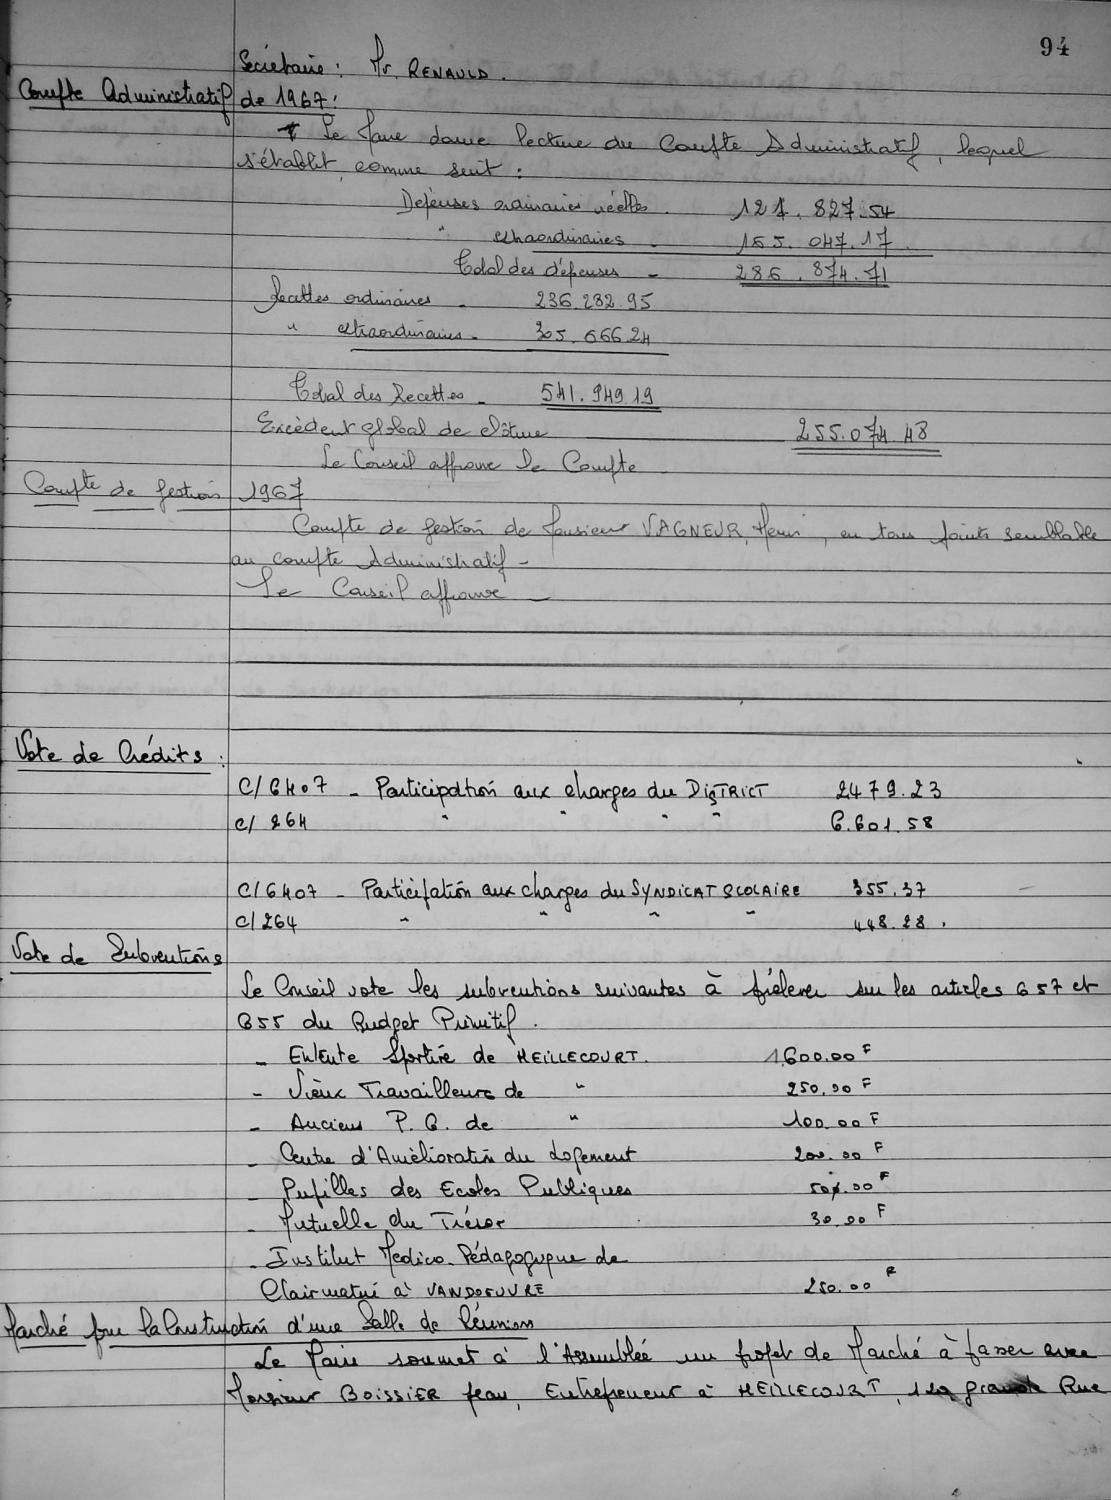 94
Secrétaire : Mr. RENAULD.
Compte Administratif de 1967 :
Le Maire donne lecture du Compte Administratif, lequel
s'établit comme suit :
Dépenses ordinaires réelles. 121.827.54
" extraordinaires - 165.047.17
Total des dépenses - 286.874.71
Recettes ordinaires - 236.282.95
" extraordinaires - 305.666.24
Total des Recettes - 541.949.19
Excédent global de clôture 255.074.48
Le Conseil approuve le Compte
Compte de gestion 1967
Compte de gestion de Monsieur VAGNEUR, Henri, en tous points semblable
au compte Administratif -
Le Conseil approuve -
Vote de Crédits :
C/6407 - Participation aux charges du DISTRICT 2479.23
C/ 264 " " " " 6.601.58
C/6407 - Participation aux charges du SYNDICAT SCOLAIRE 355.37
C/ 264 " " " " 448.28.
Vote de Subventions
Le Conseil vote les subventions suivantes à prélever sur les articles 657 et
655 du Budget Primitif.
- Entente Sportive de HEILLECOURT. 1.600.00 F
- Vieux Travailleurs de " 250,00 F
- Anciens P. G. de " 100,00 F
- Centre d'Amélioration du Logement 200.00 F
- Pupilles des Ecoles Publiques .00 F
- Mutuelle du Trésor 30.00 F
- Institut Medico-Pédagogique de
Clairmatin à VANDOEUVRE 250.00 F
Marché pour la Construction d'une Salle de Réunions
Le Maire soumet à l'Assemblée un projet de Marché à passer avec
Monsieur BOISSIER Jean, Entrepreneur à HEILLECOURT, grande Rue